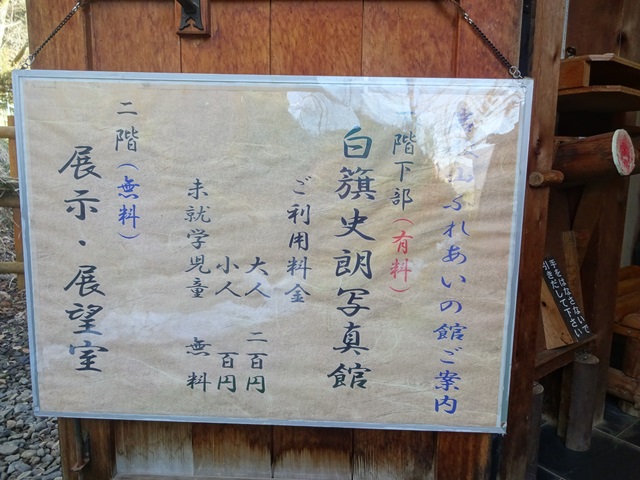 ふれあいの館ご案内
階下部(有料)
白籏史朗写真館
ご利用料金
大人 二百円
小人 百円
未就学児童 無料
二階(無料)
展示・展望室
手をはなさないで
引きだして下さい